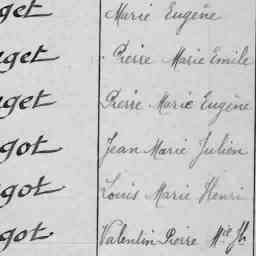 get Marie Eugène
get Pierre Marie Emile
get Pierre Marie Eugène
got Jean Marie Julien
got Louis Marie Henri
got Valentin Pierre Mie Jh